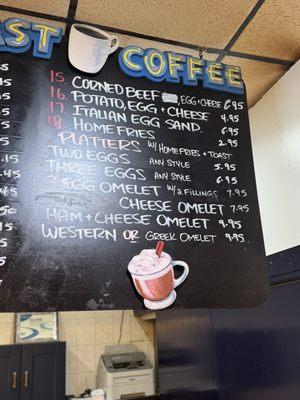 AST
COFFEE
15 CORNED BEEF EGG + CHEESE 6.95
16. POTATO, EGG + CHEESE 4.95
17. ITALIAN EGG SAND. 6.95
18 HOME FRIES 2.95
PLATTERS W/ HOME FRIES + TOAST
TWO EGGS ANY STYLE 5.95
THREE EGGS ANY STYLE 6.95
3 EGG OMELET W/ 2 FILLINGS 7.95
CHEESE OMELET 7.95
HAM + CHEESE OMELET 9.95
WESTERN OR GREEK OMELET 9.95